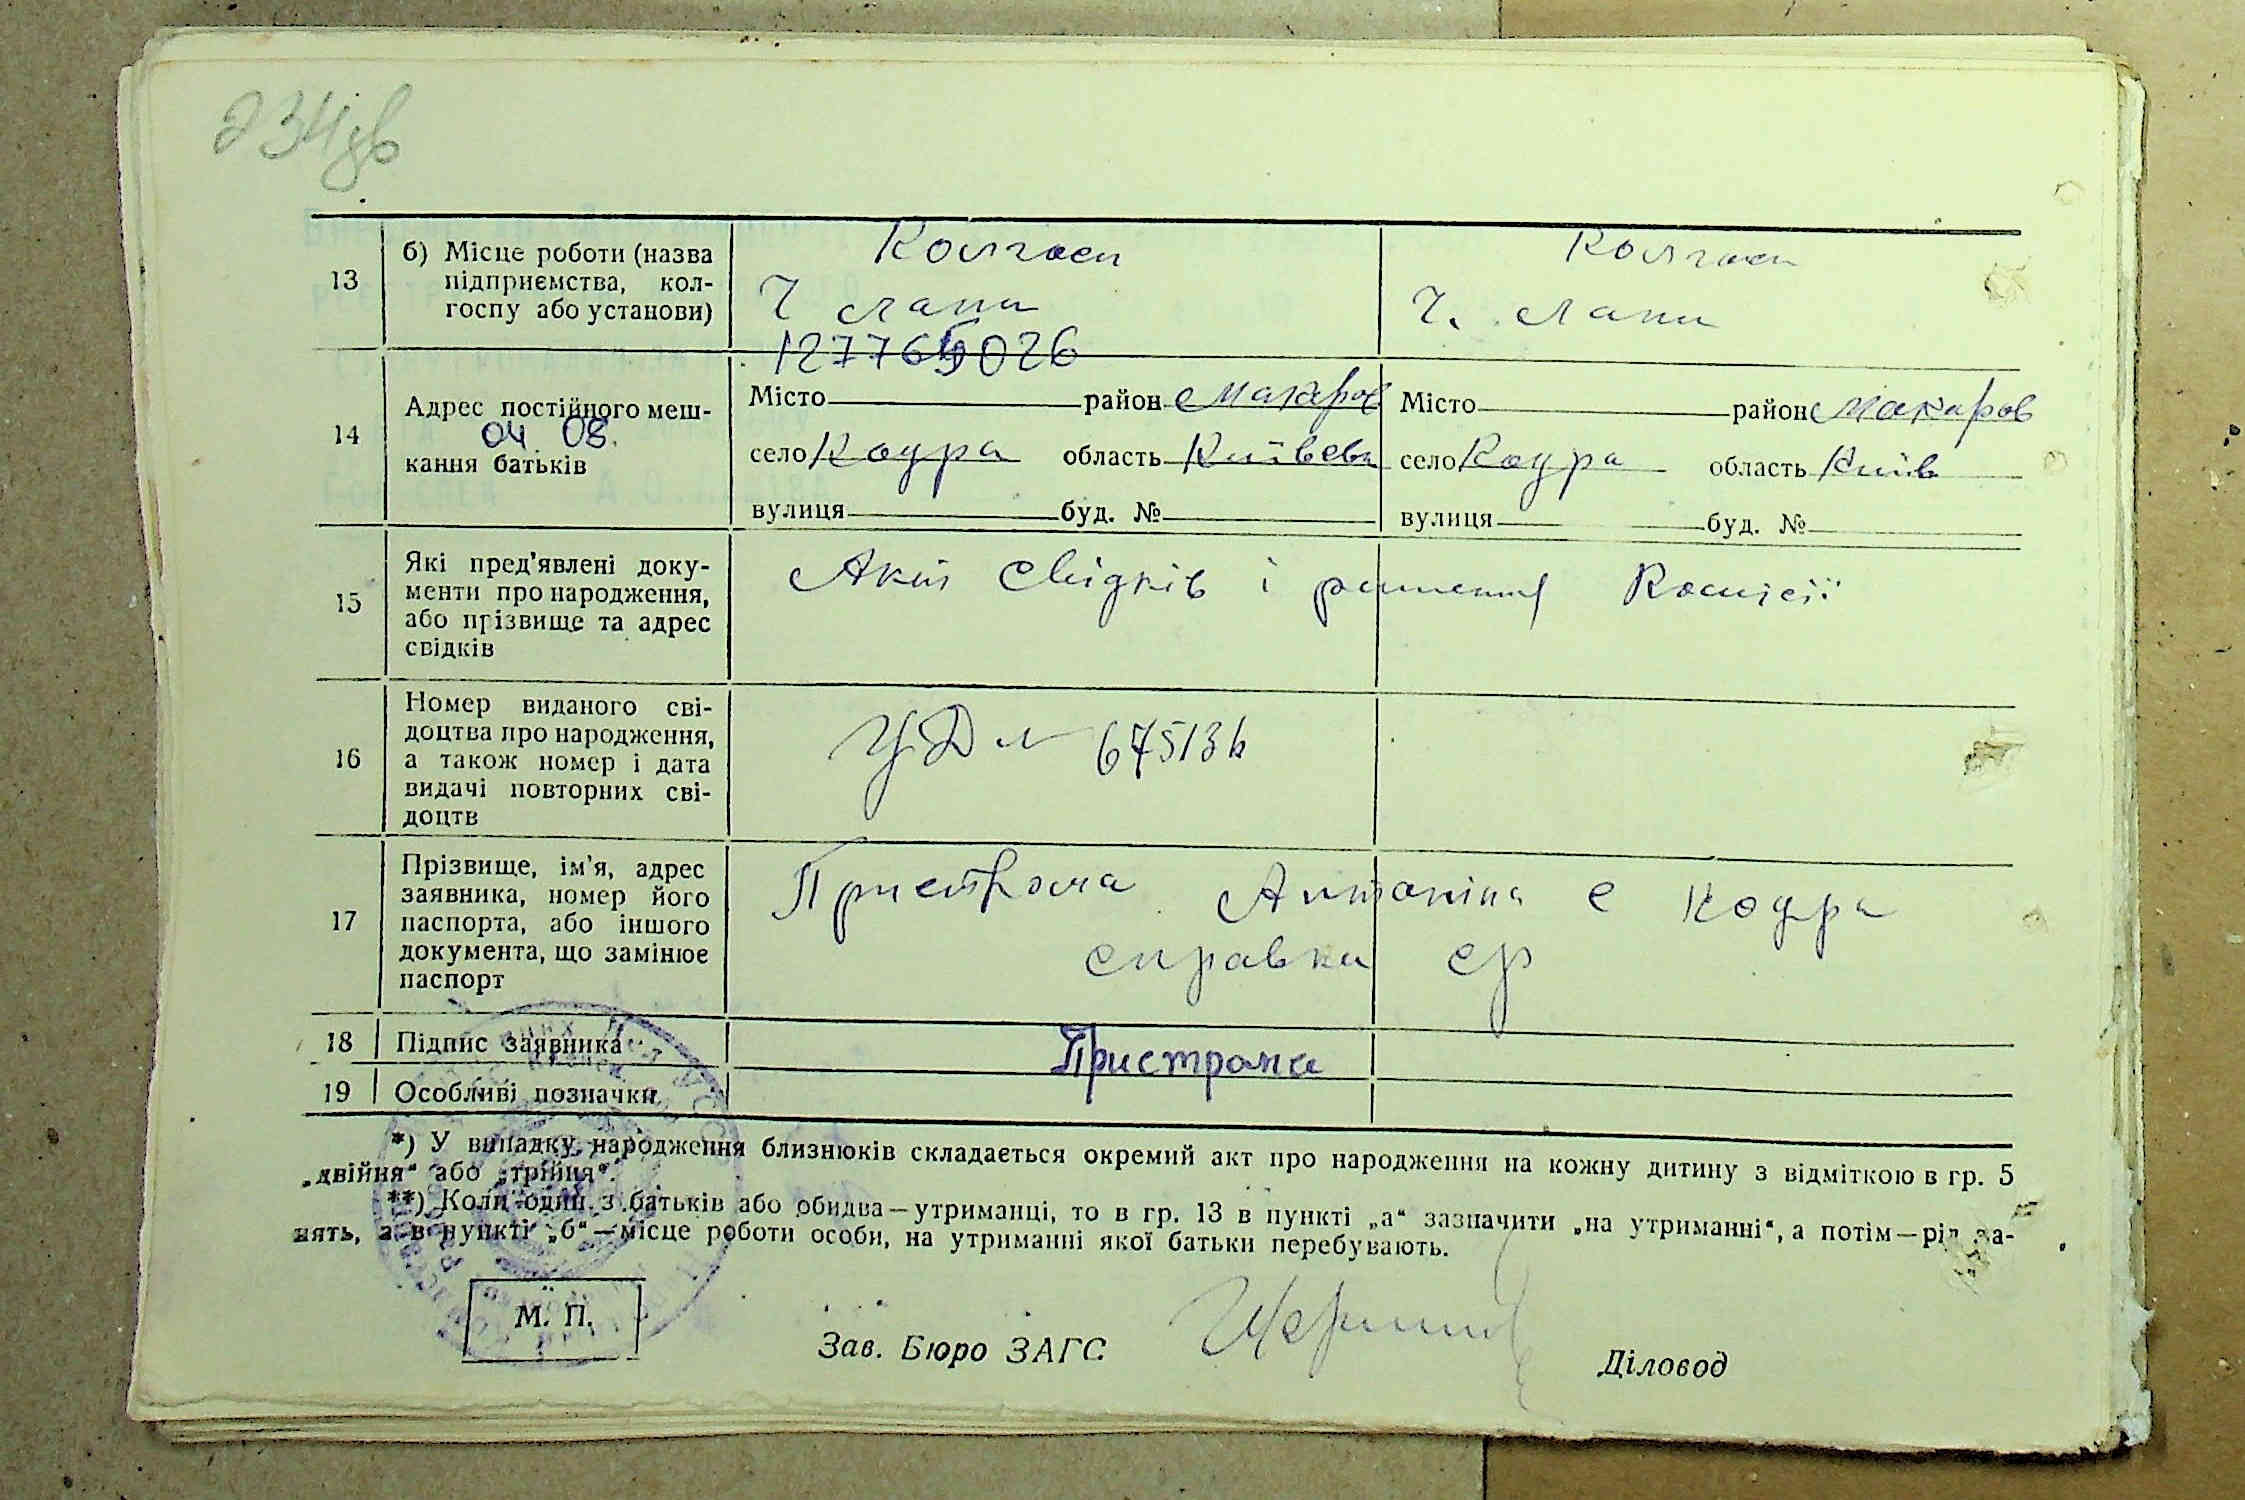 234зв
13
б) Місце роботи (назва
підприємства, кол-
госпу або установи)
Колгосп
Ч лани
Колгосп
Ч. лани
14
Адрес постійного меш-
04 08.
кання батьків
Місто район Макаров
село Кодра область Київськ
вулиця буд. №
Місто район Макаров
село Кодра область Київ
вулиця буд. №
15
Які пред'явлені доку-
менти про народження,
або прізвище та адрес
свідків
Акт свідків і рішення Комісії
16
Номер виданого сві-
доцтва про народження,
а також номер і дата
видачі повторних сві-
доцтв
17
Прізвище, ім'я, адрес
заявника, номер його
паспорта, або іншого
документа, що замінює
паспорт
Пристрома Антоніна с Кодра
справка ср
18
Підпис заявника
Пристрома
19
Особливі позначки
*) У випадку народження близнюків складається окремий акт про народження на кожну дитину з відміткою в гр. 5
„двійня“ або „трійня“.
**) Коли один з батьків або обидва—утриманці, то в гр. 13 в пункті „а“ зазначити „на утриманні“, а потім—рід за-
нять, а в пункті „б“—місце роботи особи, на утриманні якої батьки перебувають.
М. П.
Зав. Бюро ЗАГС
Діловод